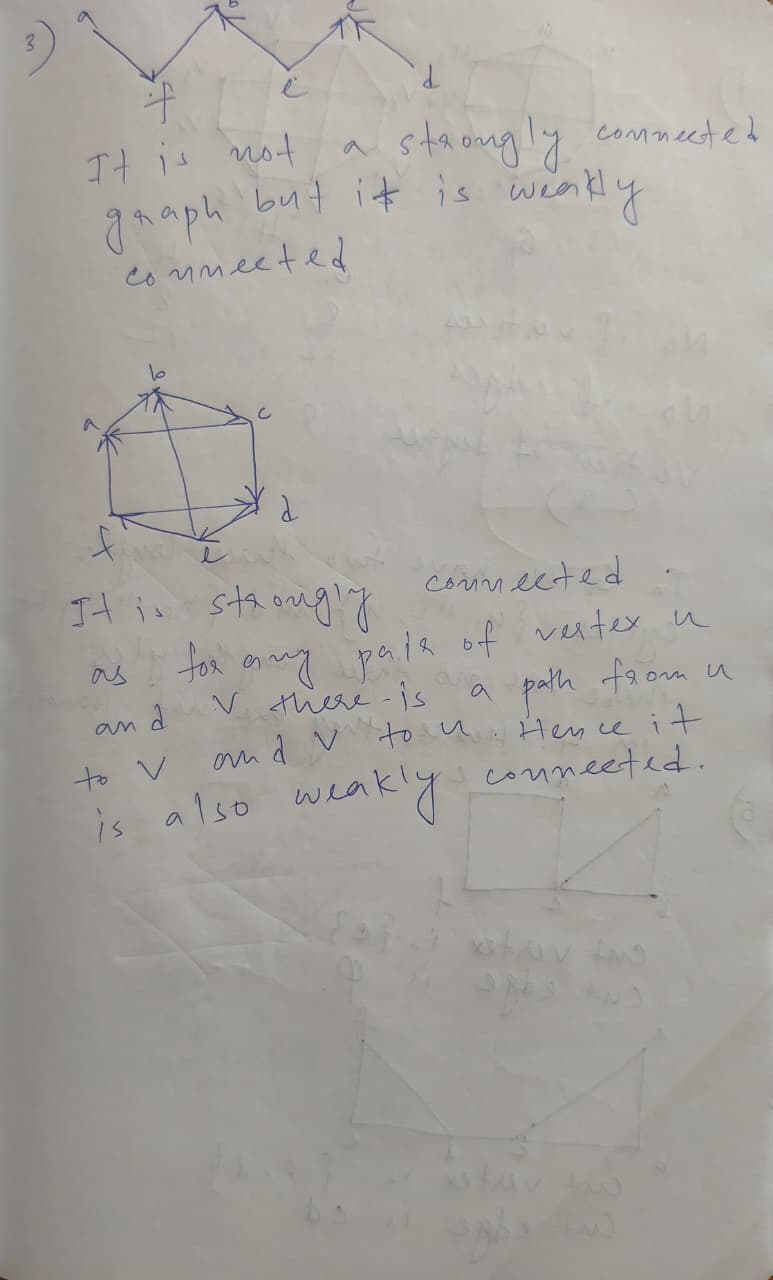 3)
a
b
c
f
e
d
It is not a strongly connected
graph but it is weakly
connected
b
a
c
d
f
e
It is strongly connected.
as for any pair of vertex u
and V there is a path from u
to V and V to u. Hence it
is also weakly connected.